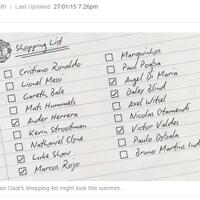 ith | Last Updated: 27/01/15 7:26pm
Shopping List
Cristiano Ronaldo
Lionel Messi
Gareth Bale
Mats Hummels
Ander Herrera
Kevin Strootman
Nathaniel Clyne
Luke Shaw
Marcos Rojo
Marquinhos
Paul Pogba
Angel Di Maria
Daley Blind
Axel Witsel
Nicolas Otamendi
Victor Valdes
Paulo Dybala
Bruno Martins Ind
an Gaal's shopping list might look this summer...